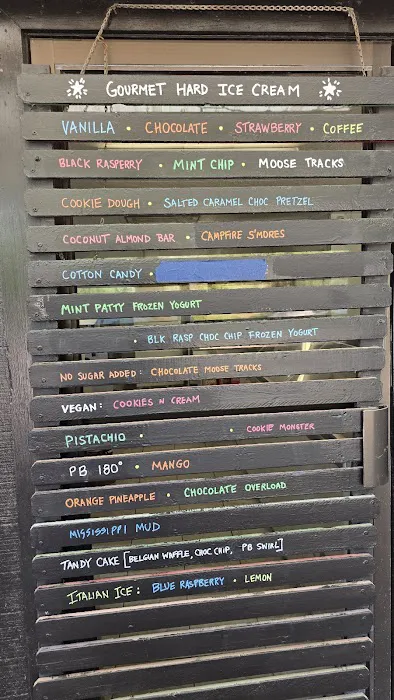 GOURMET HARD ICE CREAM
VANILLA • CHOCOLATE • STRAWBERRY • COFFEE
BLACK RASPERRY • MINT CHIP • MOOSE TRACKS
COOKIE DOUGH • SALTED CARAMEL CHOC PRETZEL
COCONUT ALMOND BAR • CAMPFIRE S'MORES
COTTON CANDY •
MINT PATTY FROZEN YOGURT
• BLK RASP CHOC CHIP FROZEN YOGURT
NO SUGAR ADDED: CHOCOLATE MOOSE TRACKS
VEGAN: COOKIES N CREAM
PISTACHIO • • COOKIE MONSTER
PB 180° • MANGO
ORANGE PINEAPPLE • CHOCOLATE OVERLOAD
MISSISSIPPI MUD
TANDY CAKE [BELGIAN WAFFLE, CHOC CHIP, PB SWIRL]
ITALIAN ICE: BLUE RASPBERRY • LEMON